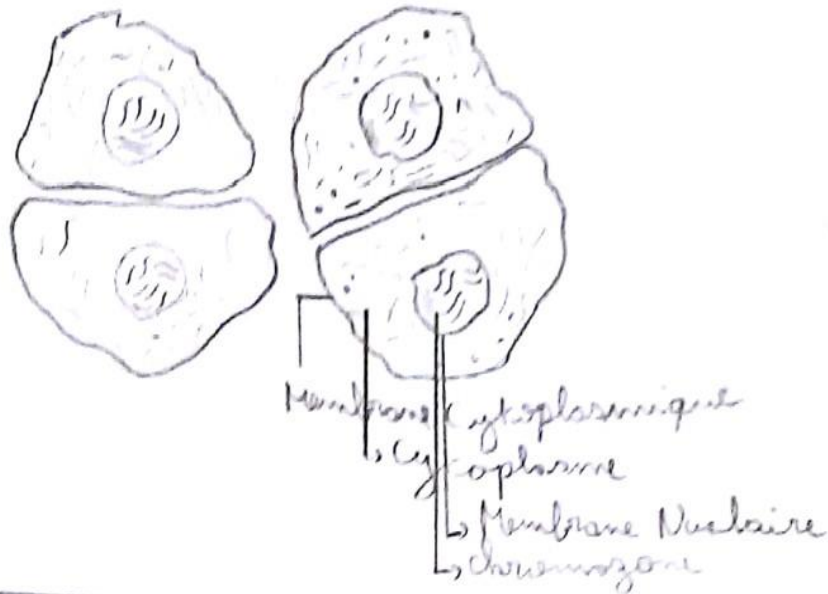 Membrane Cytoplasmique
Cytoplasme
Membrane Nuclaire
Chromozone